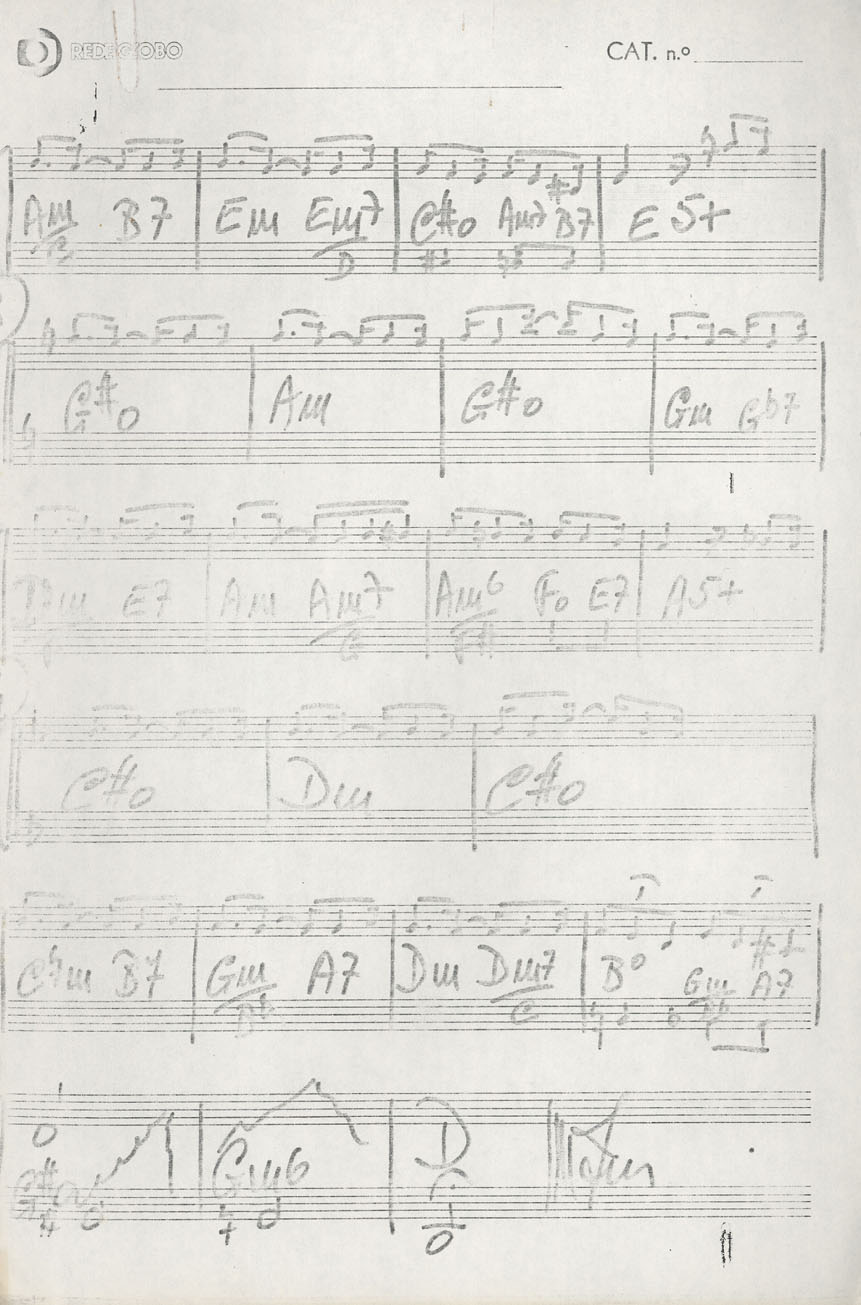 REDE GLOBO CAT. n.º
Am/C B7 Em Em7/D C#o Am7 B7 E5+
G#o Am G#o Gm Gb7
E7 Am Am7/G Am6/F# Fo E7 A5+
C#o Dm C#o
B7 Gm/Bb A7 Dm Dm7/C Bo Gm A7
G#o Gm6 D
Fim